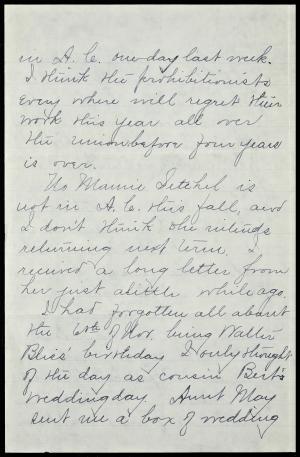 in A. C. one day last week.
I think the prohibitionists
every where will regret their
work this year all over
the union before four years
is over.
No Mamie Getchel is
not in A. C. this fall, and
I don't think she intends
returning next term. I
received a long letter from
her just a little while ago.
I had forgotten all about
the 6th of Nov. being Walter
Blis's birthday I only thought
of the day as cousin Bert's
wedding day. Aunt May
sent me a box of wedding